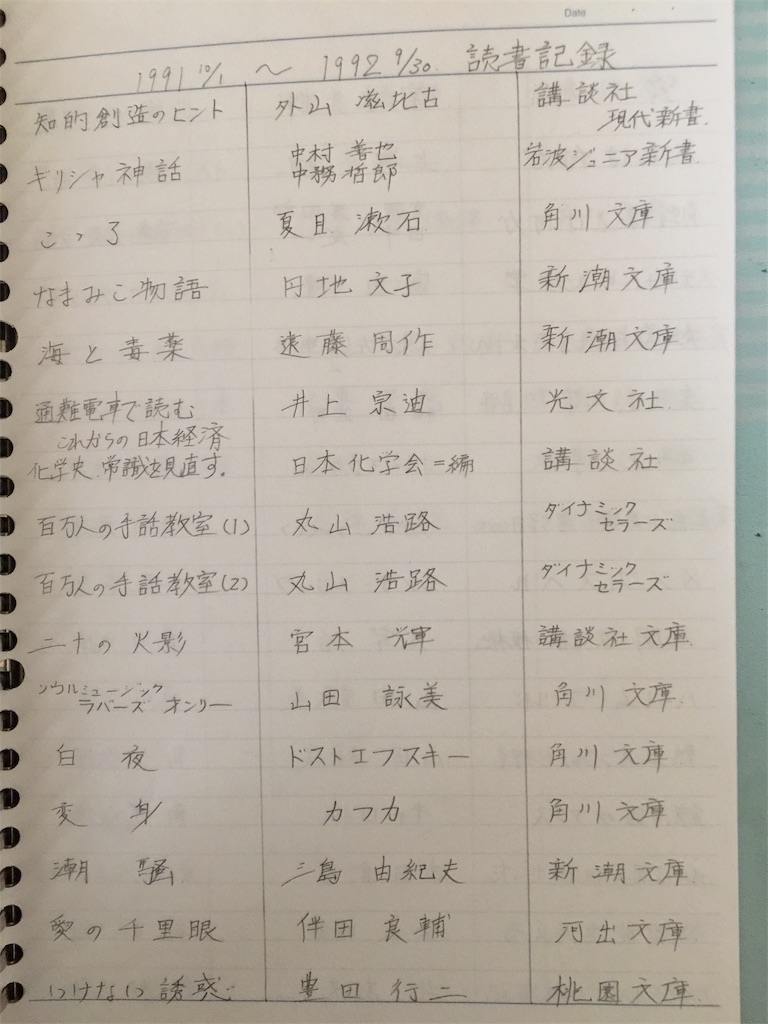 Date
1991 10/1 ～ 1992 9/30. 読書記録
知的創造のヒント 外山 滋比古 講談社
現代新書.
ギリシャ神話 中村 善也 岩波ジュニア新書
中務哲郎
こゝろ 夏目 漱石 角川文庫
なまみこ物語 円地 文子 新潮文庫
海と毒薬 遠藤 周作 新潮文庫
通難電車で読む 井上 宗迪 光文社
これからの日本経済
化学史 常識を見直す. 日本化学会＝編 講談社
百万人の手話教室(1) 丸山 浩路 ダイナミック
セラーズ
百万人の手話教室(2) 丸山 浩路 ダイナミック
セラーズ
二十の火影 宮本 輝 講談社文庫
ソウルミュージック
ラバーズ オンリー 山田 詠美 角川文庫
白夜 ドストエフスキー 角川文庫
変身 カフカ 角川文庫
潮騒 三島 由紀夫 新潮文庫
愛の千里眼 伴田 良輔 河出文庫
いけない誘惑 豊田 行二 桃園文庫